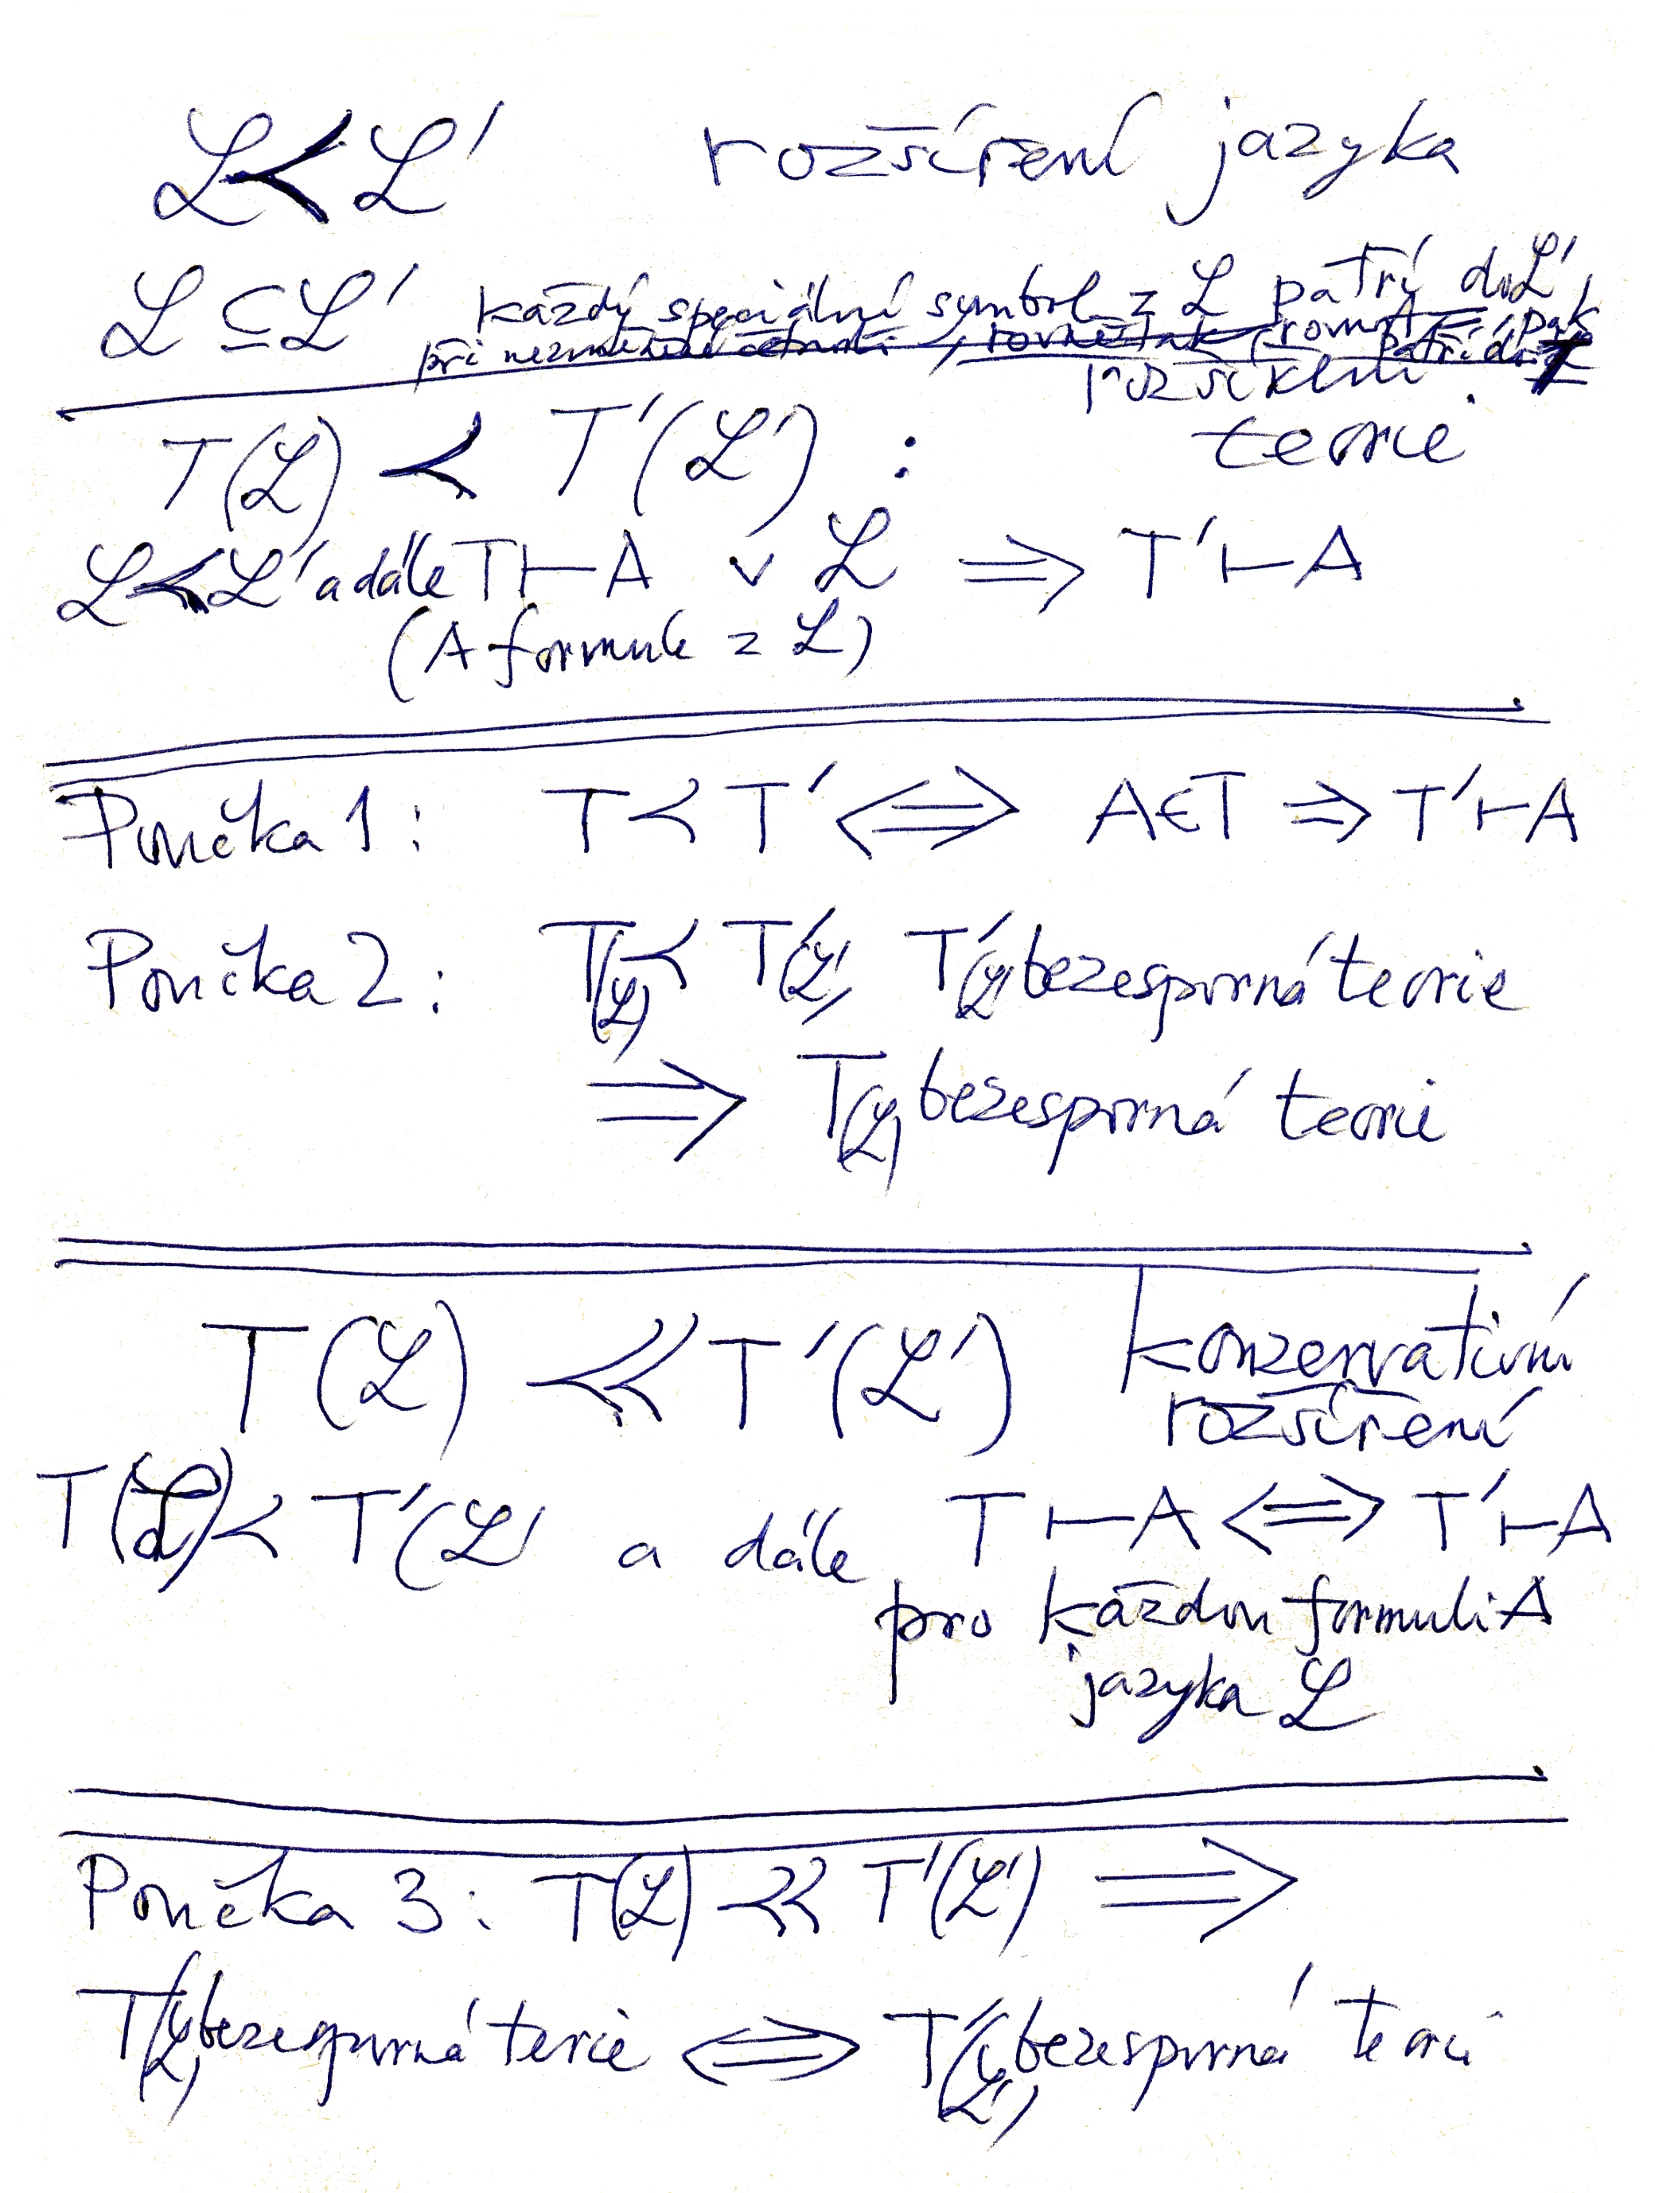 ℒ ≺ ℒ' rozšíření jazyka
ℒ ⊆ ℒ' každý speciální symbol z ℒ patří do ℒ',
při nezměněné četnosti
rozšíření
T(ℒ) ≺ T'(ℒ') : teorie
ℒ ≺ ℒ' a dále T ⊢ A v ℒ ⇒ T' ⊢ A
(A formule z ℒ)
Poučka 1: T ≺ T' ⇔ A ∈ T ⇒ T' ⊢ A
Poučka 2: T(ℒ) ≺ T'(ℒ'), T'(ℒ') bezesporná teorie
⇒ T(ℒ) bezesporná teorie
T(ℒ) ≪ T'(ℒ') konzervativní
rozšíření
T(ℒ) ≺ T'(ℒ' a dále T ⊢ A ⇔ T' ⊢ A
pro každou formuli A
jazyka ℒ
Poučka 3: T(ℒ) ≪ T'(ℒ') ⇒
T(ℒ) bezesporná teorie ⇔ T'(ℒ') bezesporná teorie